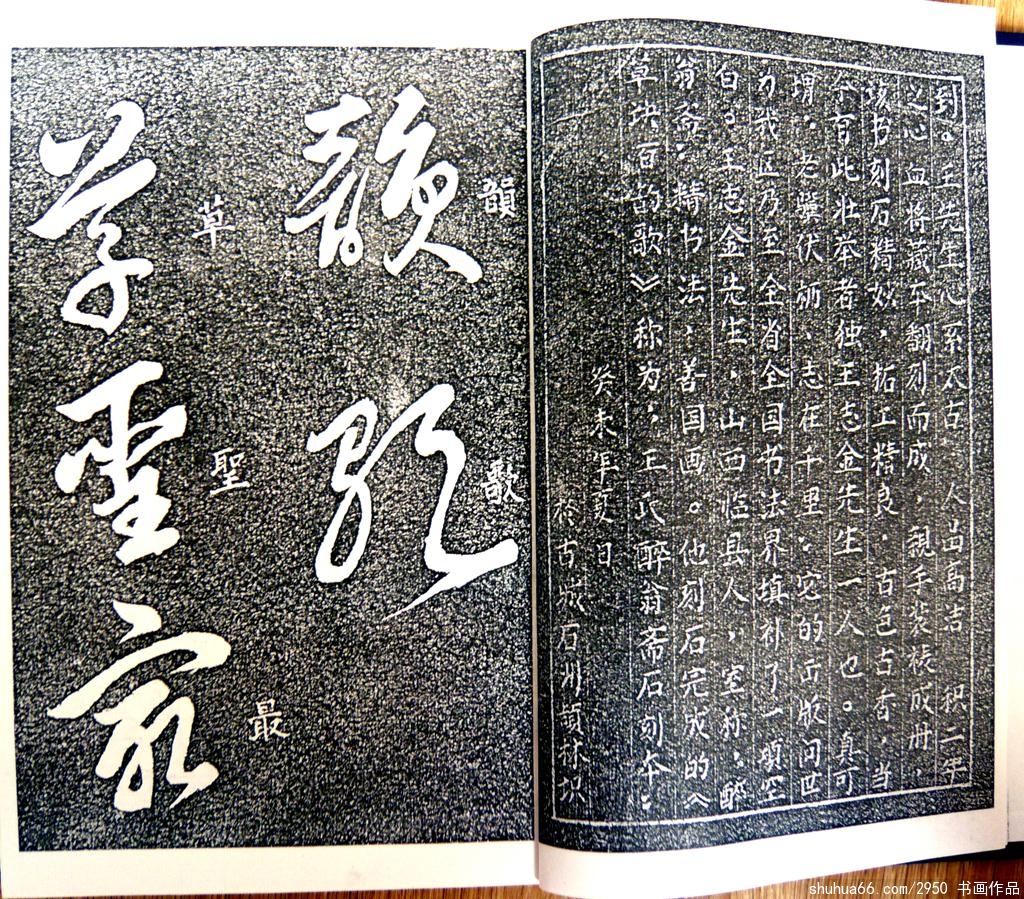 到。王先生心系太古 人品高洁 积二年
之心血将藏本翻刻而成,親手装裱成册,
该书刻石精妙,拓工精良,古色古香,当
今有此壮举者独王志金先生一人也。真可
谓:老骥伏枥,志在千里。它的正版问世
为我区乃至全省全国书法界填补了一項空
白。王志金先生,山西临县人,室称:醉
翁斋:精书法,善国画。他刻石完成的《
草决百韵歌》称为:王氏醉翁斋石刻本:
癸未年亥日
於古城石州
韻歌
韻 歌
草聖最
草 聖 最
shuhua66.com/2950 书画作品